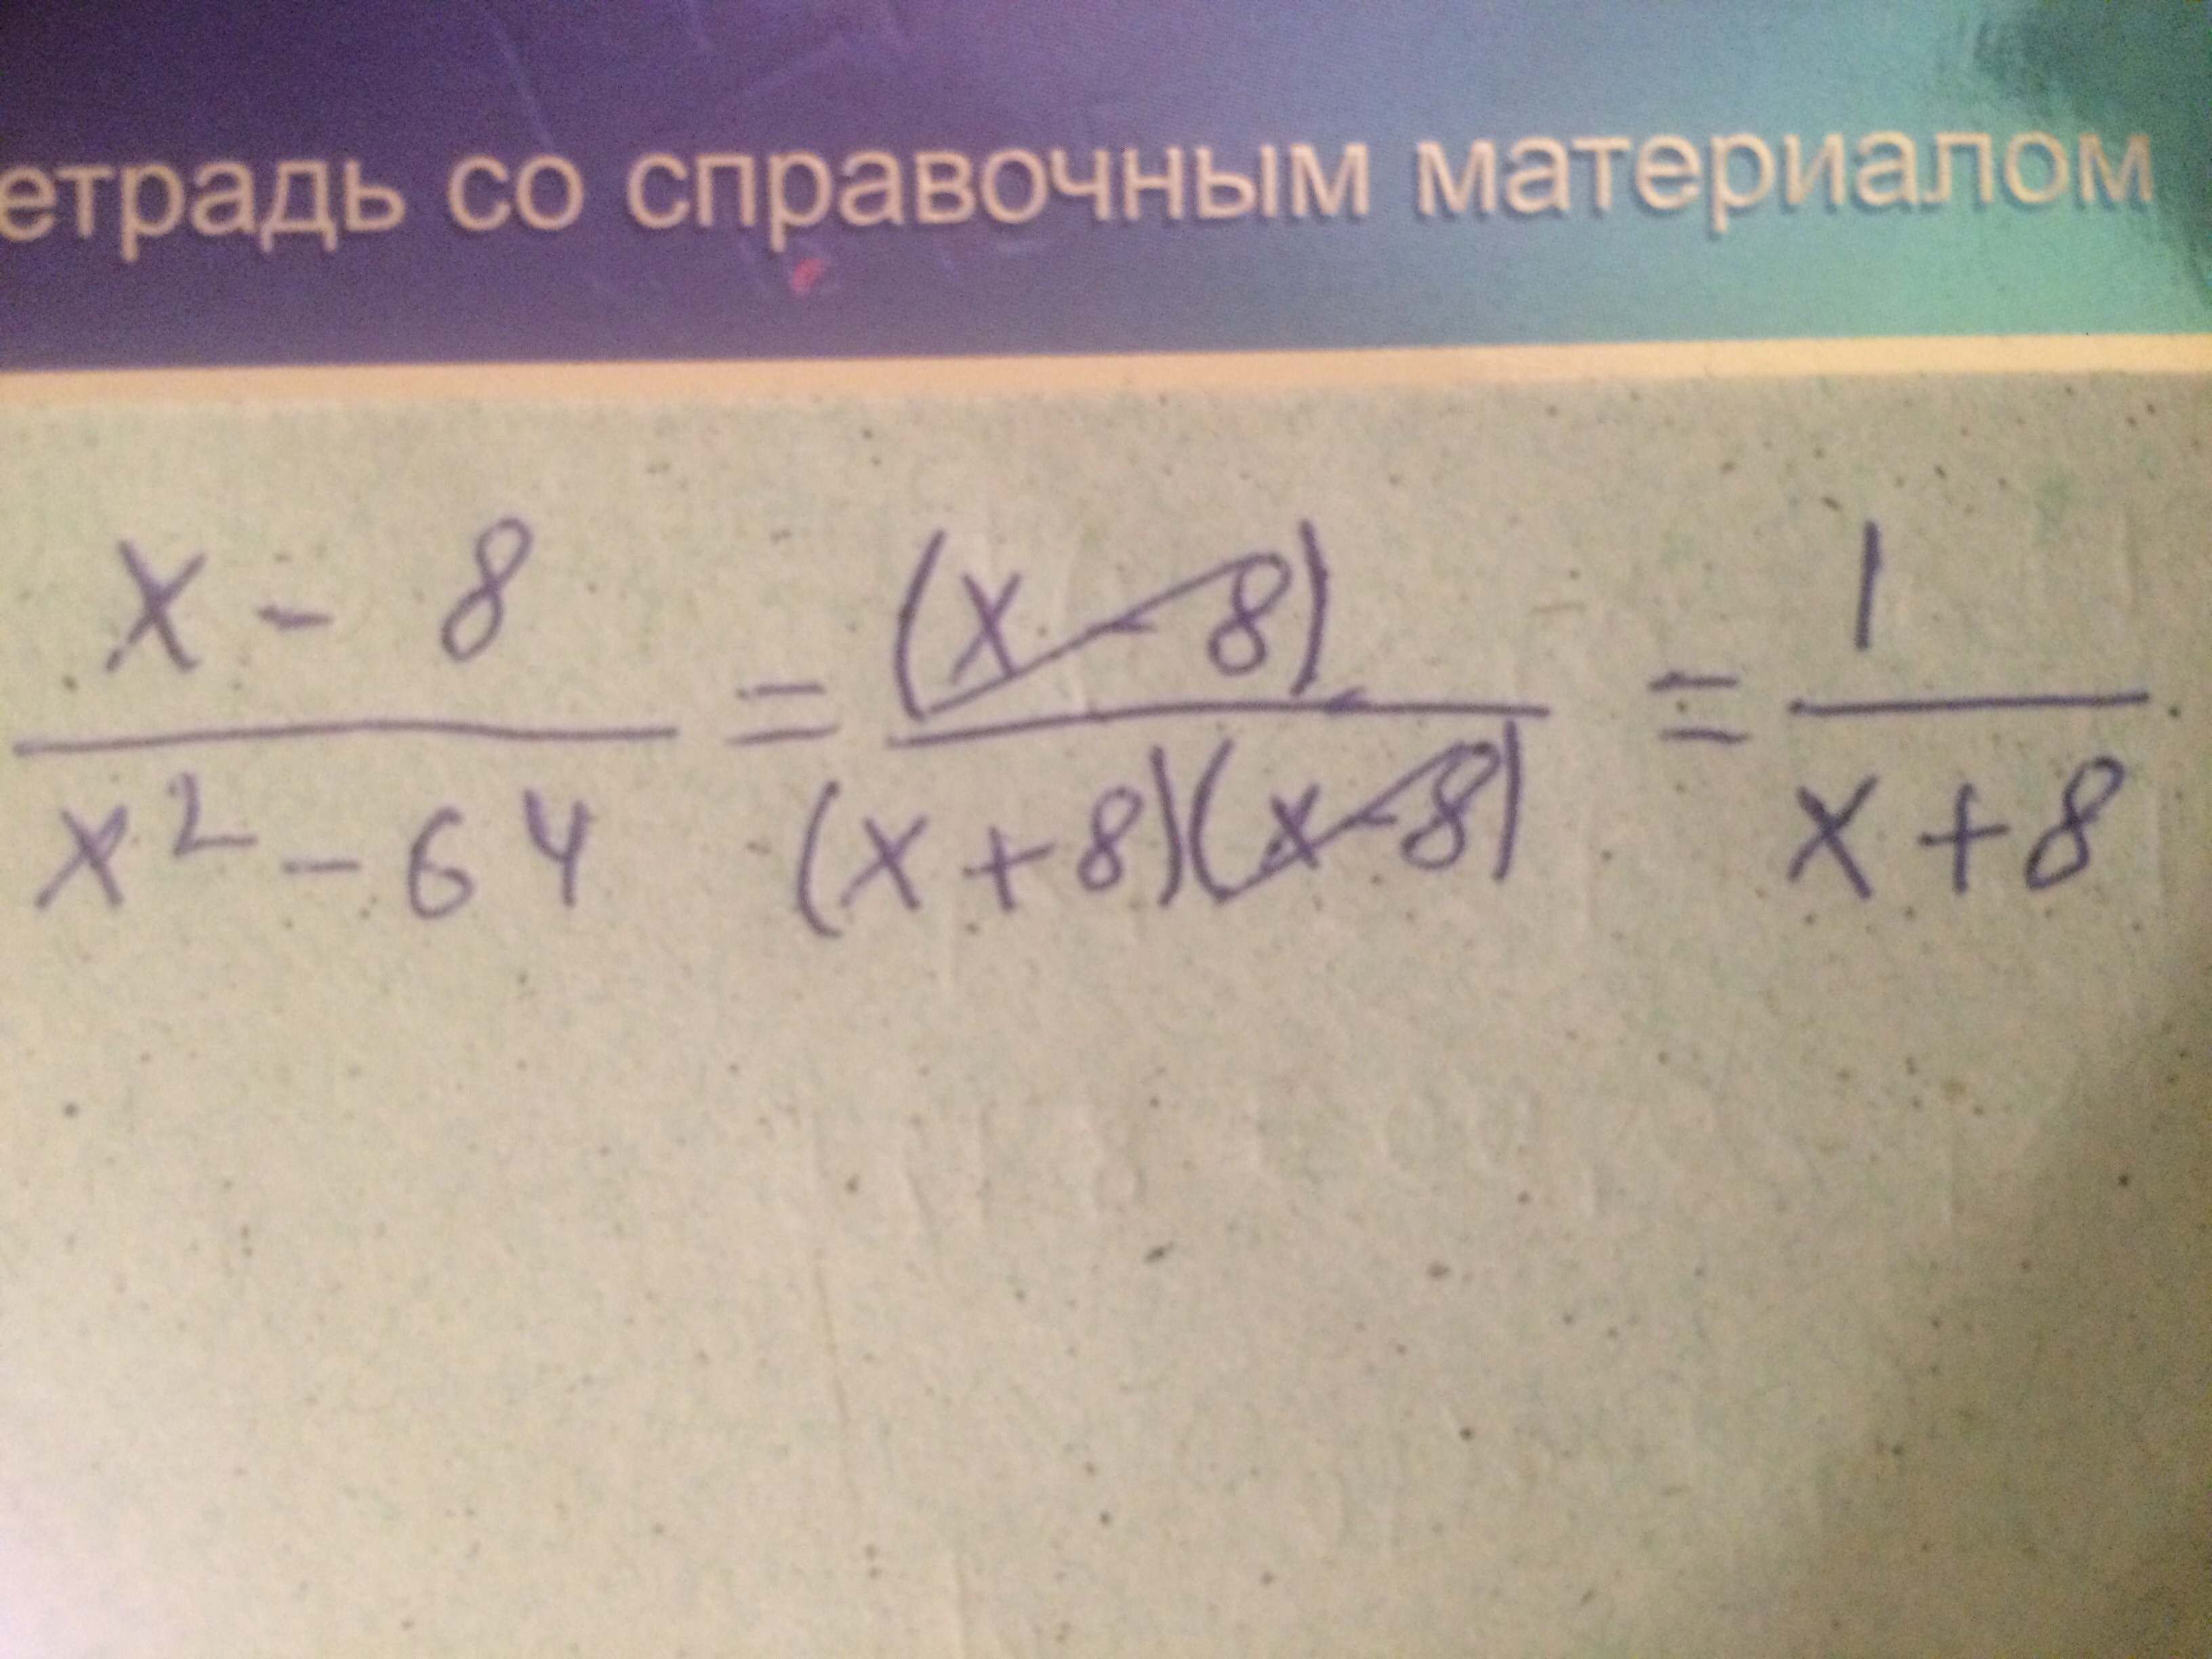 етрадь со справочным материалом
x - 8 / x² - 64 = (x - 8) / (x + 8)(x - 8) = 1 / x + 8